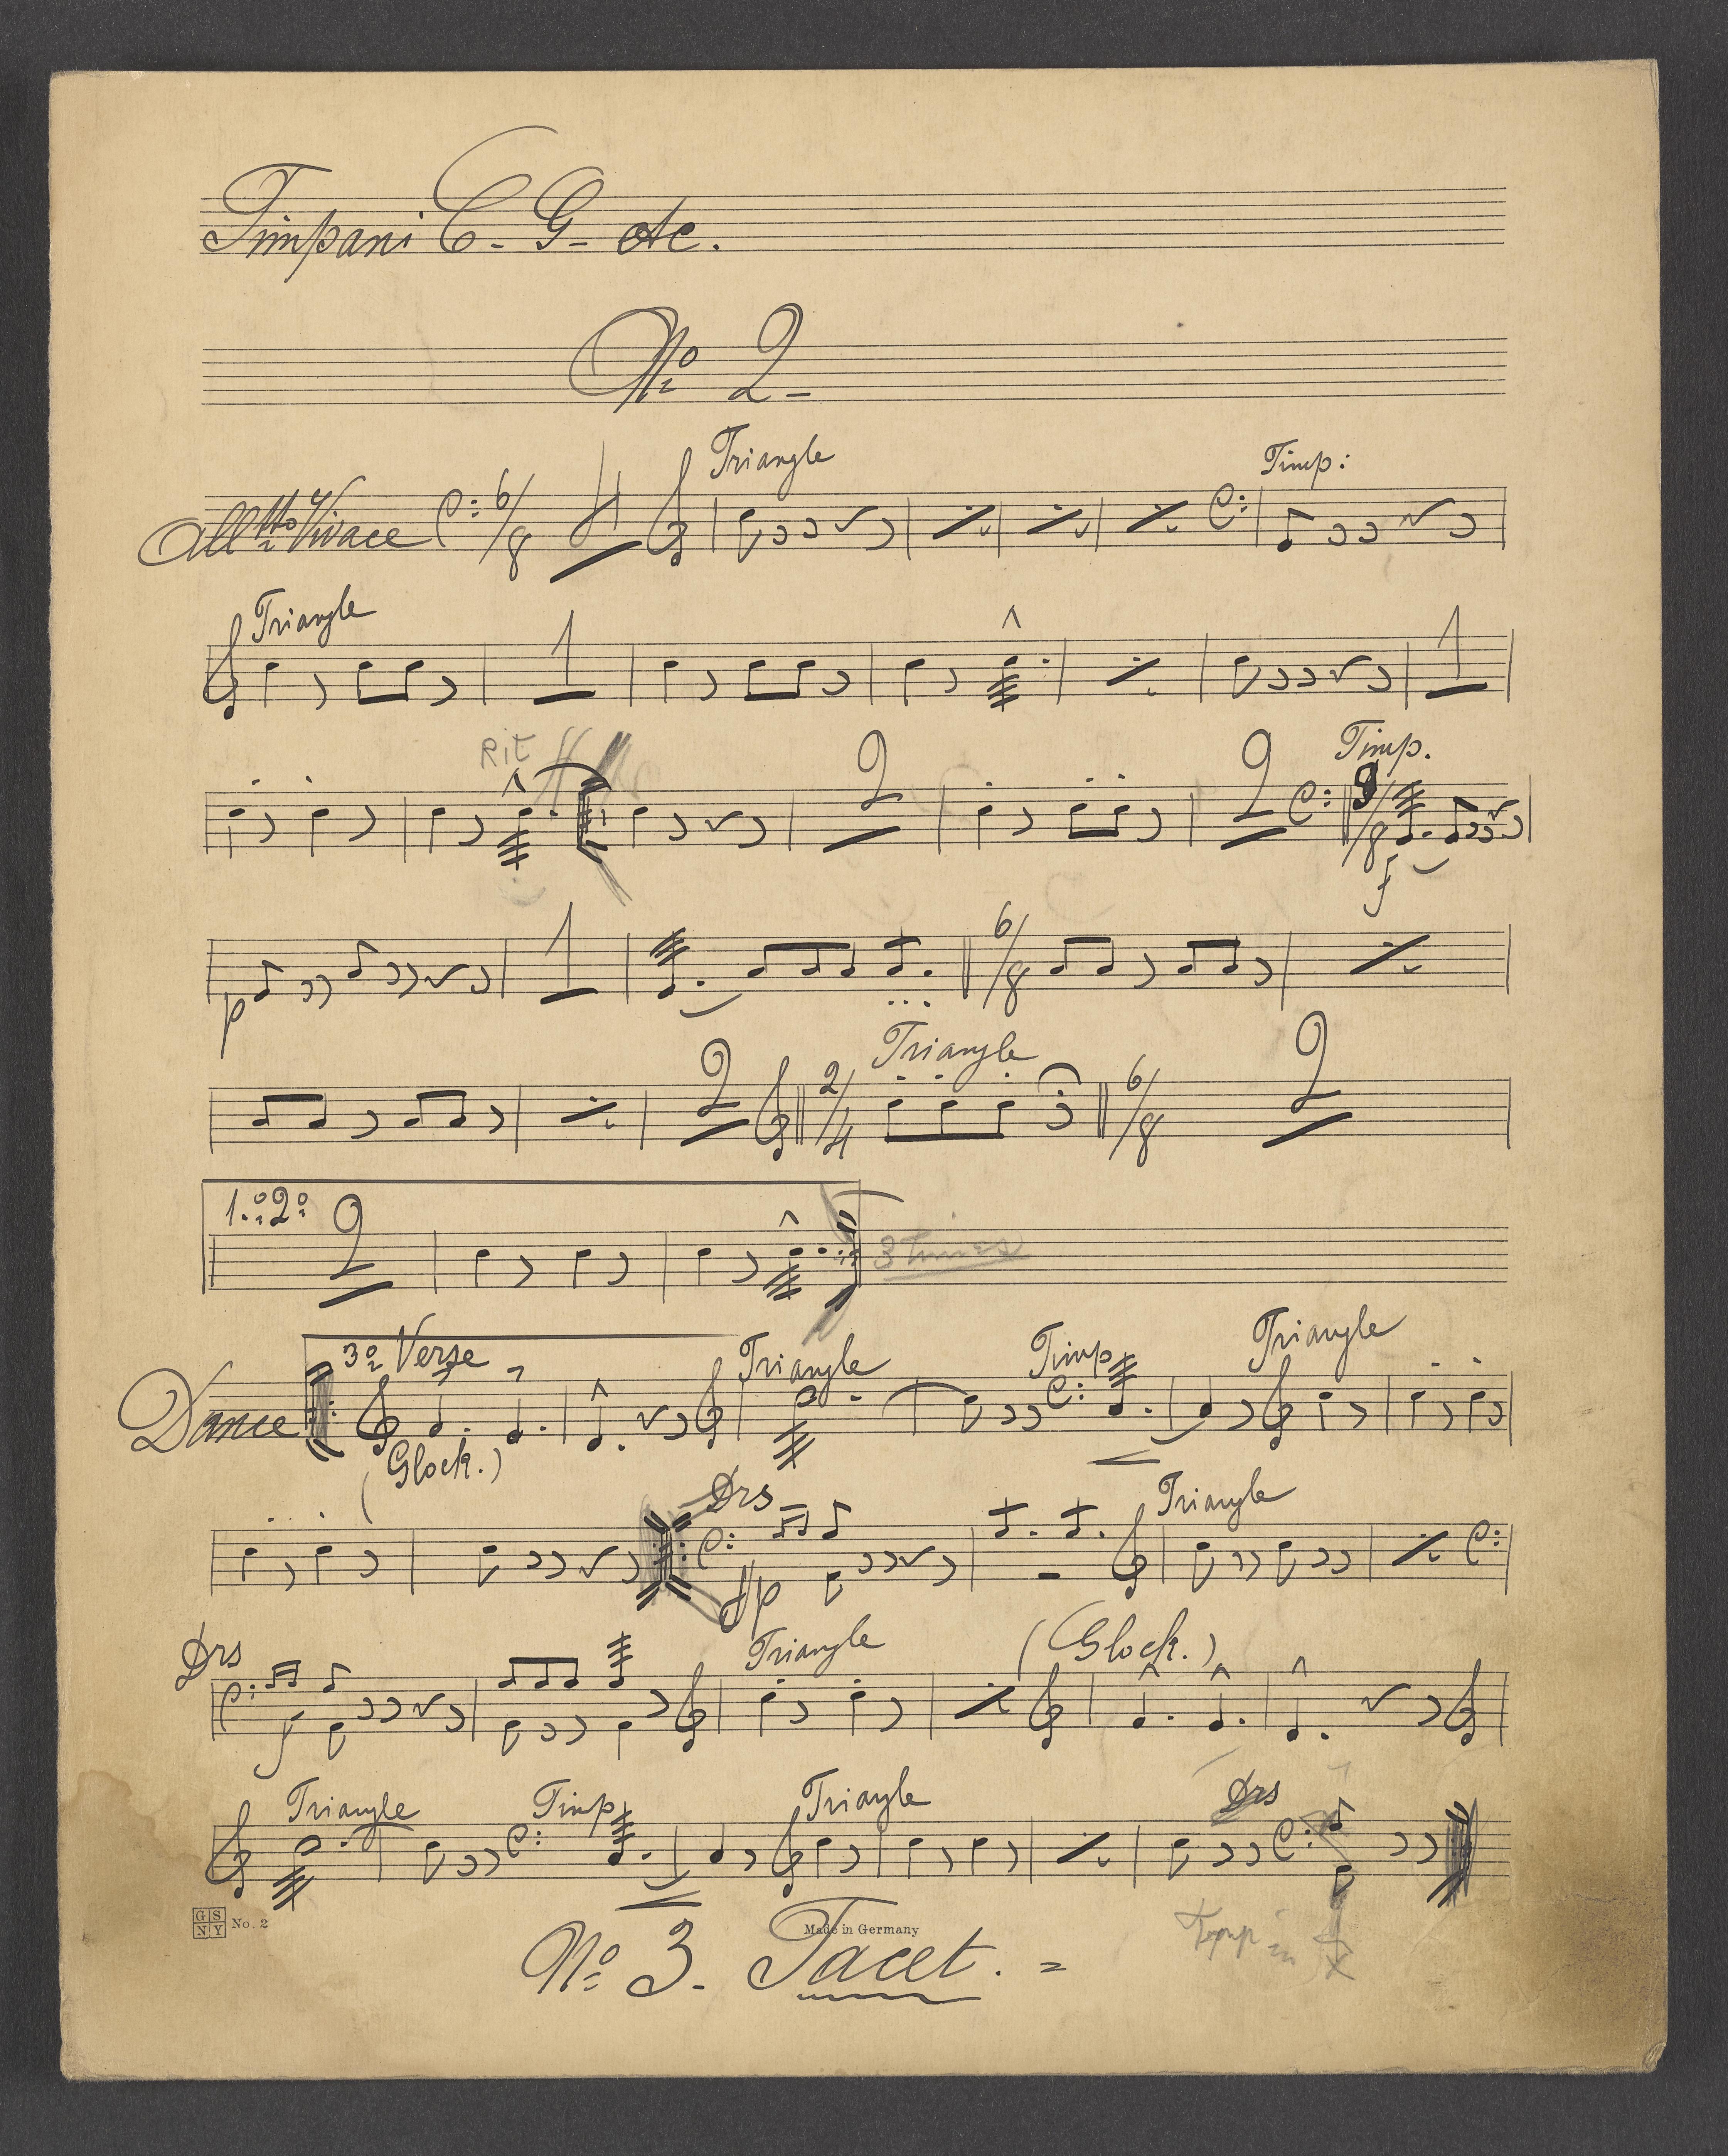 Timpani C - G - etc.
No 2 -
Triangle Timp:
Alltto Vivace 6/8 4
Triangle
1 1
Rit
2 2 Timp. 9/8
f
p 1 6/8
Triangle
2 2/4 6/8 2
1.o 2o 2 3 times
3o Verse Triangle Timp Triangle
Dance
(Glock.)
Drs Triangle
Drs Triangle (Glock.)
f
Triangle Timp Triangle Drs
GS NY No. 2 Made in Germany
No 3. Tacet. =